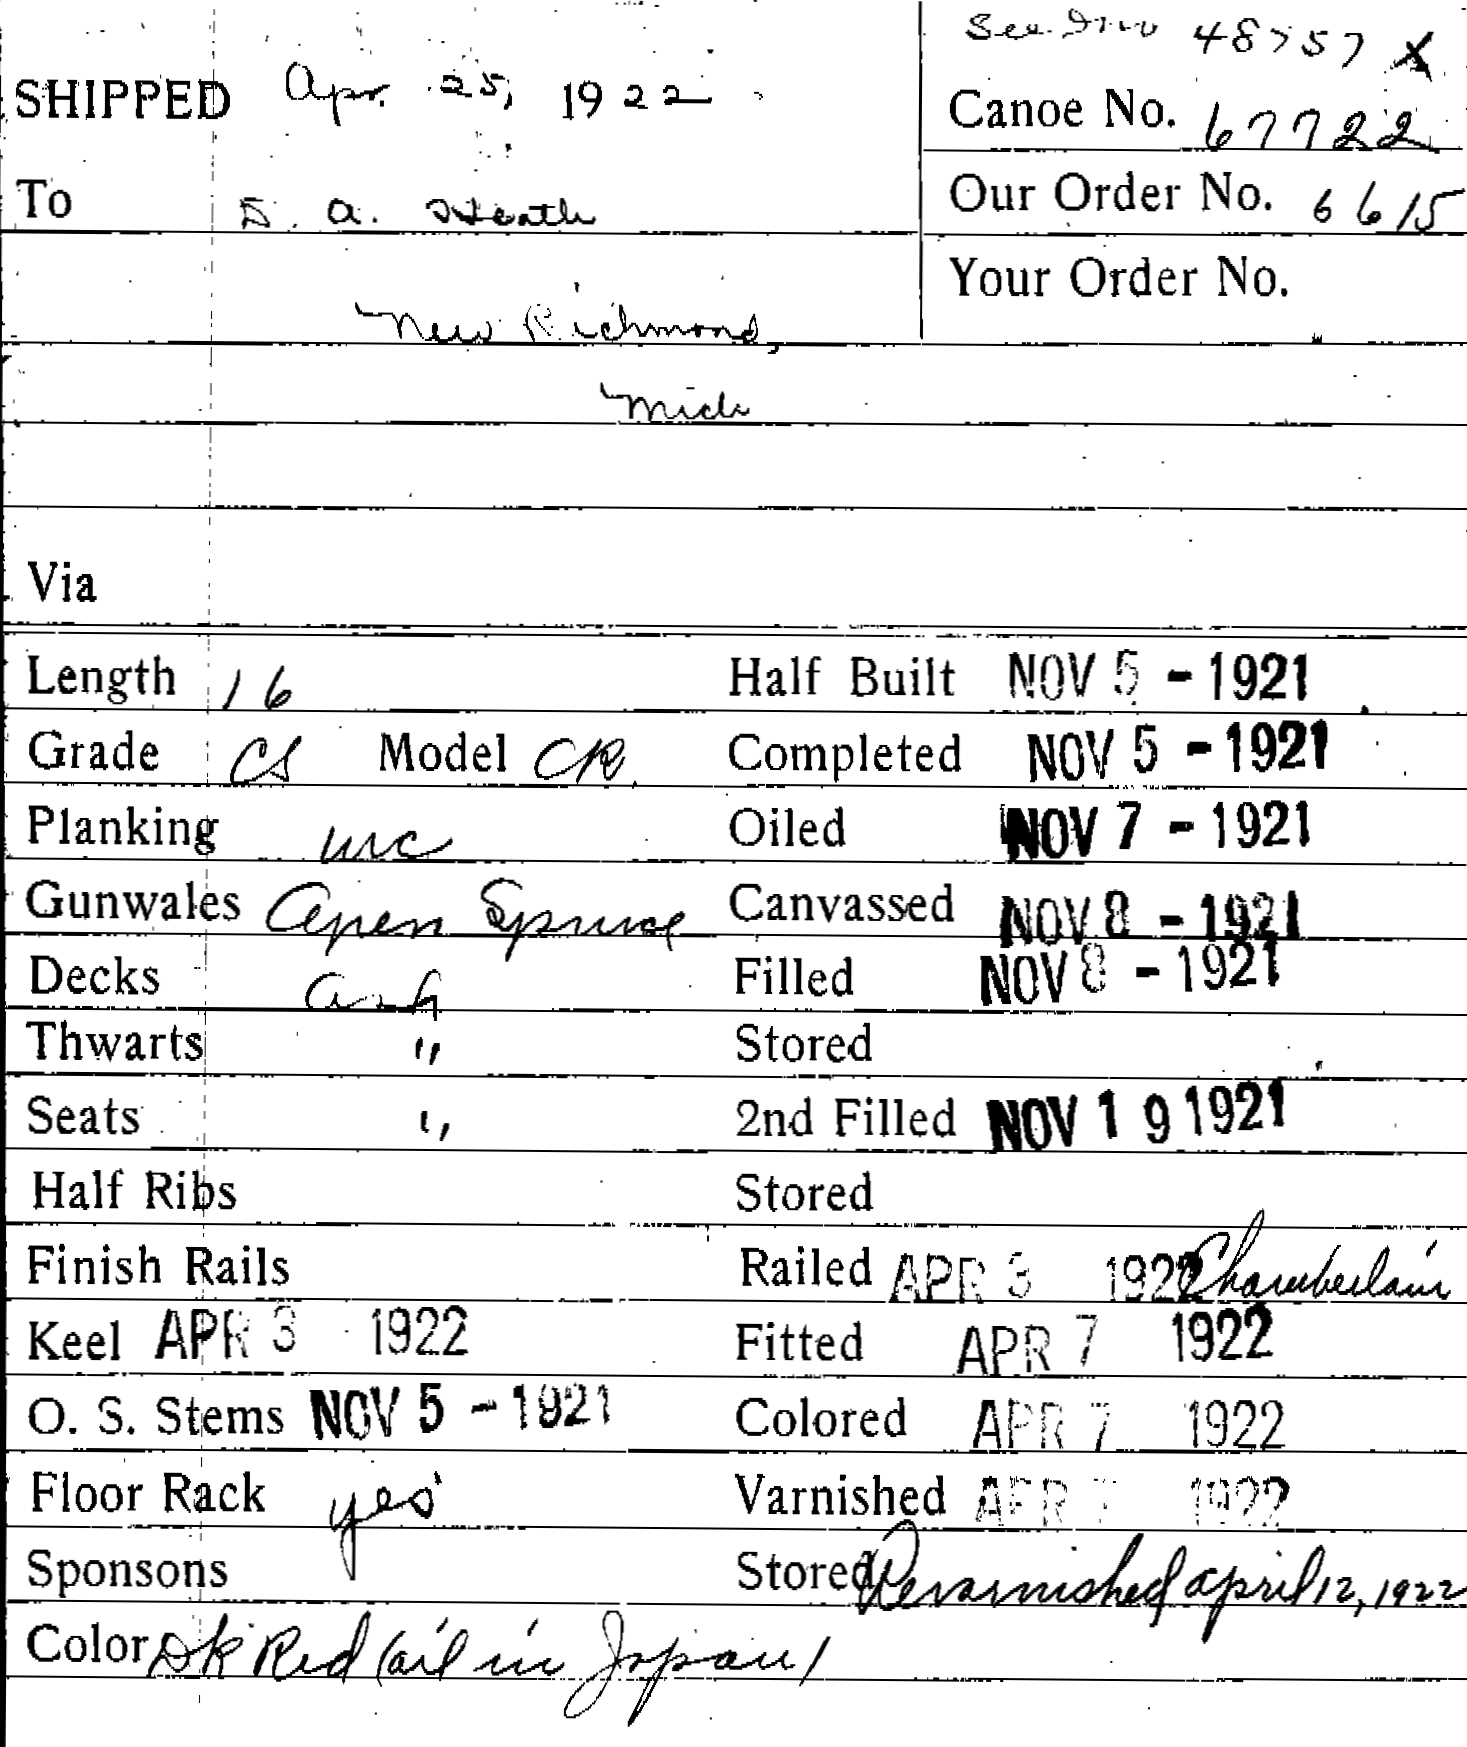 See Inv 48757 X
SHIPPED Apr. 25, 1922
Canoe No. 67722
To D. A. Heath
Our Order No. 6615
Your Order No.
New Richmond,
Mich
Via
Length 16 Half Built NOV 5 - 1921
Grade CS Model CR Completed NOV 5 - 1921
Planking WC Oiled NOV 7 - 1921
Gunwales Open Spruce Canvassed NOV 8 - 1921
Decks Ash Filled NOV 8 - 1921
Thwarts " Stored
Seats " 2nd Filled NOV 19 1921
Half Ribs Stored
Finish Rails Railed APR 3 1922 Chamberlain
Keel APR 3 1922 Fitted APR 7 1922
O. S. Stems NOV 5 - 1921 Colored APR 7 1922
Floor Rack yes Varnished APR 7 1922
Sponsons Stored Revarnished April 12, 1922
Color Dk Red (oil in Japan)